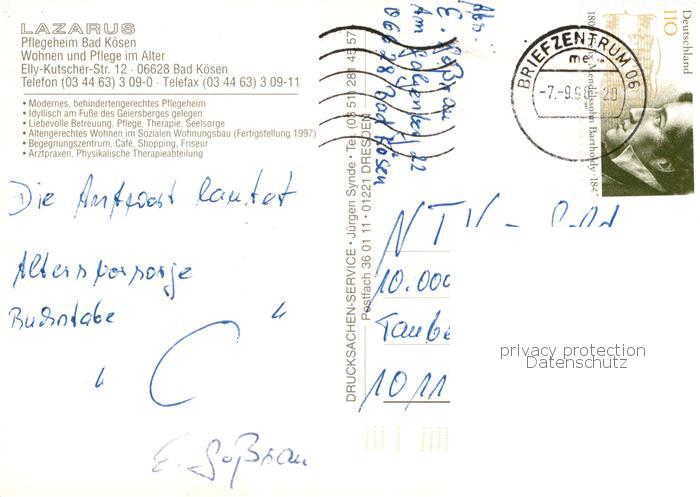 LAZARUS
Pflegeheim Bad Kösen
Wohnen und Pflege im Alter
Elly-Kutscher-Str. 12 · 06628 Bad Kösen
Telefon (03 44 63) 3 09-0 · Telefax (03 44 63) 3 09-11
• Modernes, behindertengerechtes Pflegeheim
• Idyllisch am Fuße des Geiersberges gelegen
• Liebevolle Betreuung, Pflege, Therapie, Seelsorge
• Altengerechtes Wohnen im Sozialen Wohnungsbau (Fertigstellung 1997)
• Begegnungszentrum, Café, Shopping, Friseur
• Arztpraxen, Physikalische Therapieabteilung
Die Antwort lautet
Altersvorsorge
Buchstabe "
" C
E. Goßrau
DRUCKSACHEN-SERVICE · Jürgen Synde · Tel. (03 510 281 45 57
Postfach 36 01 11 · 01221 DRESDEN
Abs.
E. Goßrau
Am 22
06628 Bad Kösen
BRIEFZENTRUM 06
-7.-9.98-20
Deutschland
110
Mendelssohn Bartholdy
NTV-
10.000
Taube
1011
privacy protection
Datenschutz